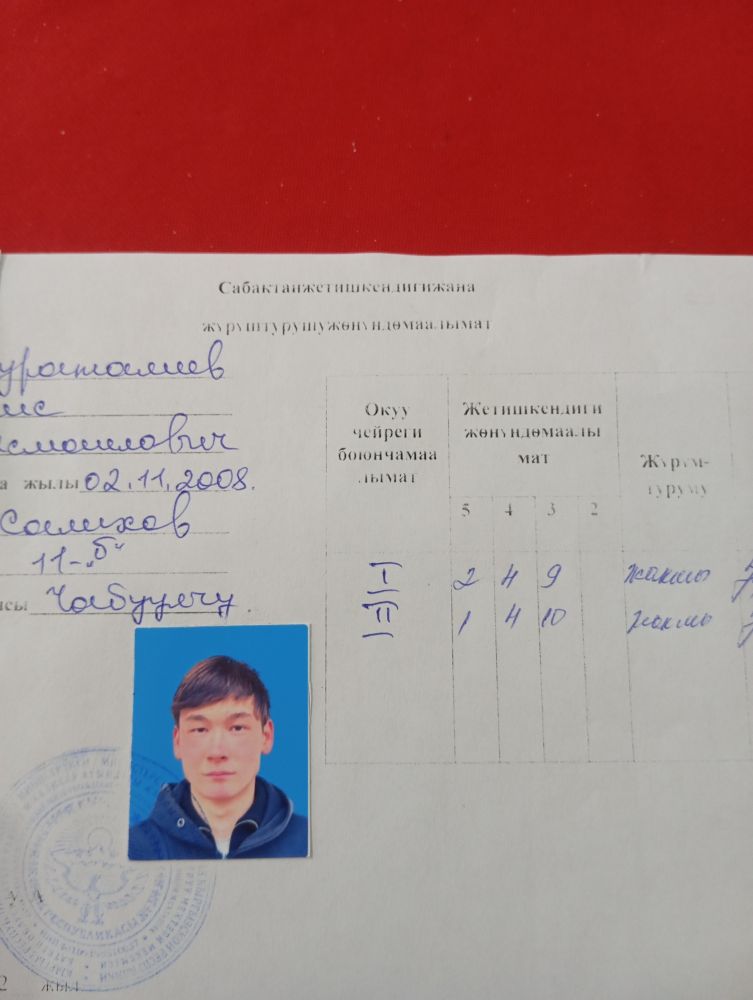 Сабактанжетишкендигижана
жүрүштурушужөнүндөмаалымат
ураталиев
ис
смоилович
а жылы 02.11.2008.
Солихов
11-„б“
сы Чабуулчу.
Окуу
чейреги
боюнчамаа
лымат
Жетишкендиги
жөнүндөмаалы
мат
Жүрүм-
туруму
5 4 3 2
I 2 4 9 жакшы
II 1 4 10 жакшы
РЕСПУБЛИКАСЫ
жыл